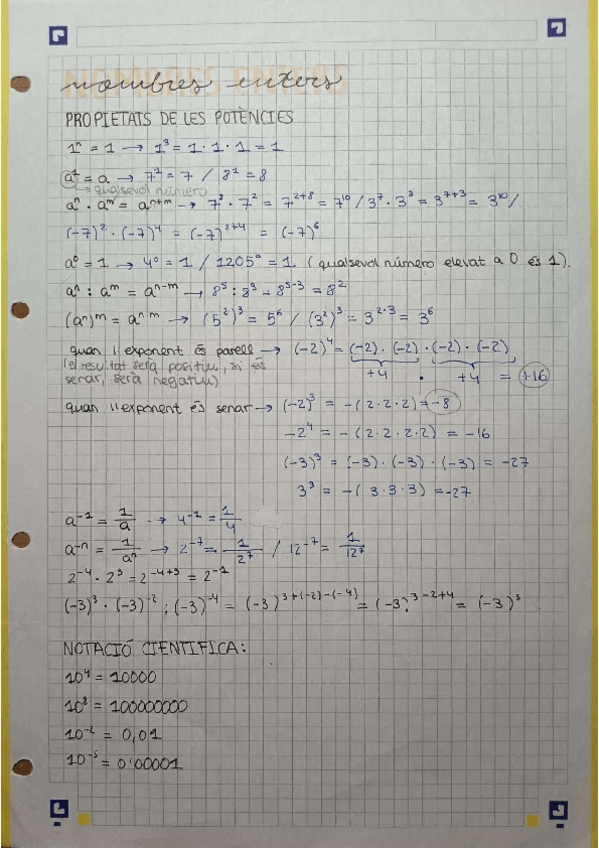 nombres enters
PROPIETATS DE LES POTÈNCIES
1ⁿ = 1 → 1³ = 1 · 1 · 1 = 1
a¹ = a → 7¹ = 7 / 8¹ = 8
→ qualsevol número
aⁿ · aᵐ = aⁿ⁺ᵐ → 7³ · 7² = 7²⁺⁸ = 7¹⁰ / 3⁷ · 3³ = 3⁷⁺³ = 3¹⁰ /
(-7)² · (-7)⁴ = (-7)²⁺⁴ = (-7)⁶
a⁰ = 1 → 4⁰ = 1 / 1205⁰ = 1 (qualsevol número elevat a 0 és 1).
aⁿ : aᵐ = aⁿ⁻ᵐ → 8⁵ : 8³ = 8⁵⁻³ = 8²
(aⁿ)ᵐ = aⁿ·ᵐ → (5²)³ = 5⁶ / (3²)³ = 3²·³ = 3⁶
quan l'exponent és parell → (-2)⁴ = (-2) · (-2) · (-2) · (-2)
(el resultat serà positiu, si és
senar, serà negatiu)
+4 · +4 = +16
quan l'exponent és senar → (-2)³ = -(2·2·2) = -8
-2⁴ = -(2·2·2·2) = -16
(-3)³ = (-3) · (-3) · (-3) = -27
3³ = -(3·3·3) = -27
a⁻¹ = 1/a → 4⁻¹ = 1/4
a⁻ⁿ = 1/aⁿ → 2⁻⁷ = 1/2⁷ / 12⁻⁷ = 1/12⁷
2⁻⁴ · 2³ = 2⁻⁴⁺³ = 2⁻¹
(-3)³ · (-3)⁻² : (-3)⁻⁴ = (-3)³⁺⁽⁻²⁾⁻⁽⁻⁴⁾ = (-3)³⁻²⁺⁴ = (-3)⁵
NOTACIÓ CIENTIFICA:
10⁴ = 10000
10⁸ = 100000000
10⁻² = 0,01
10⁻⁵ = 0'00001